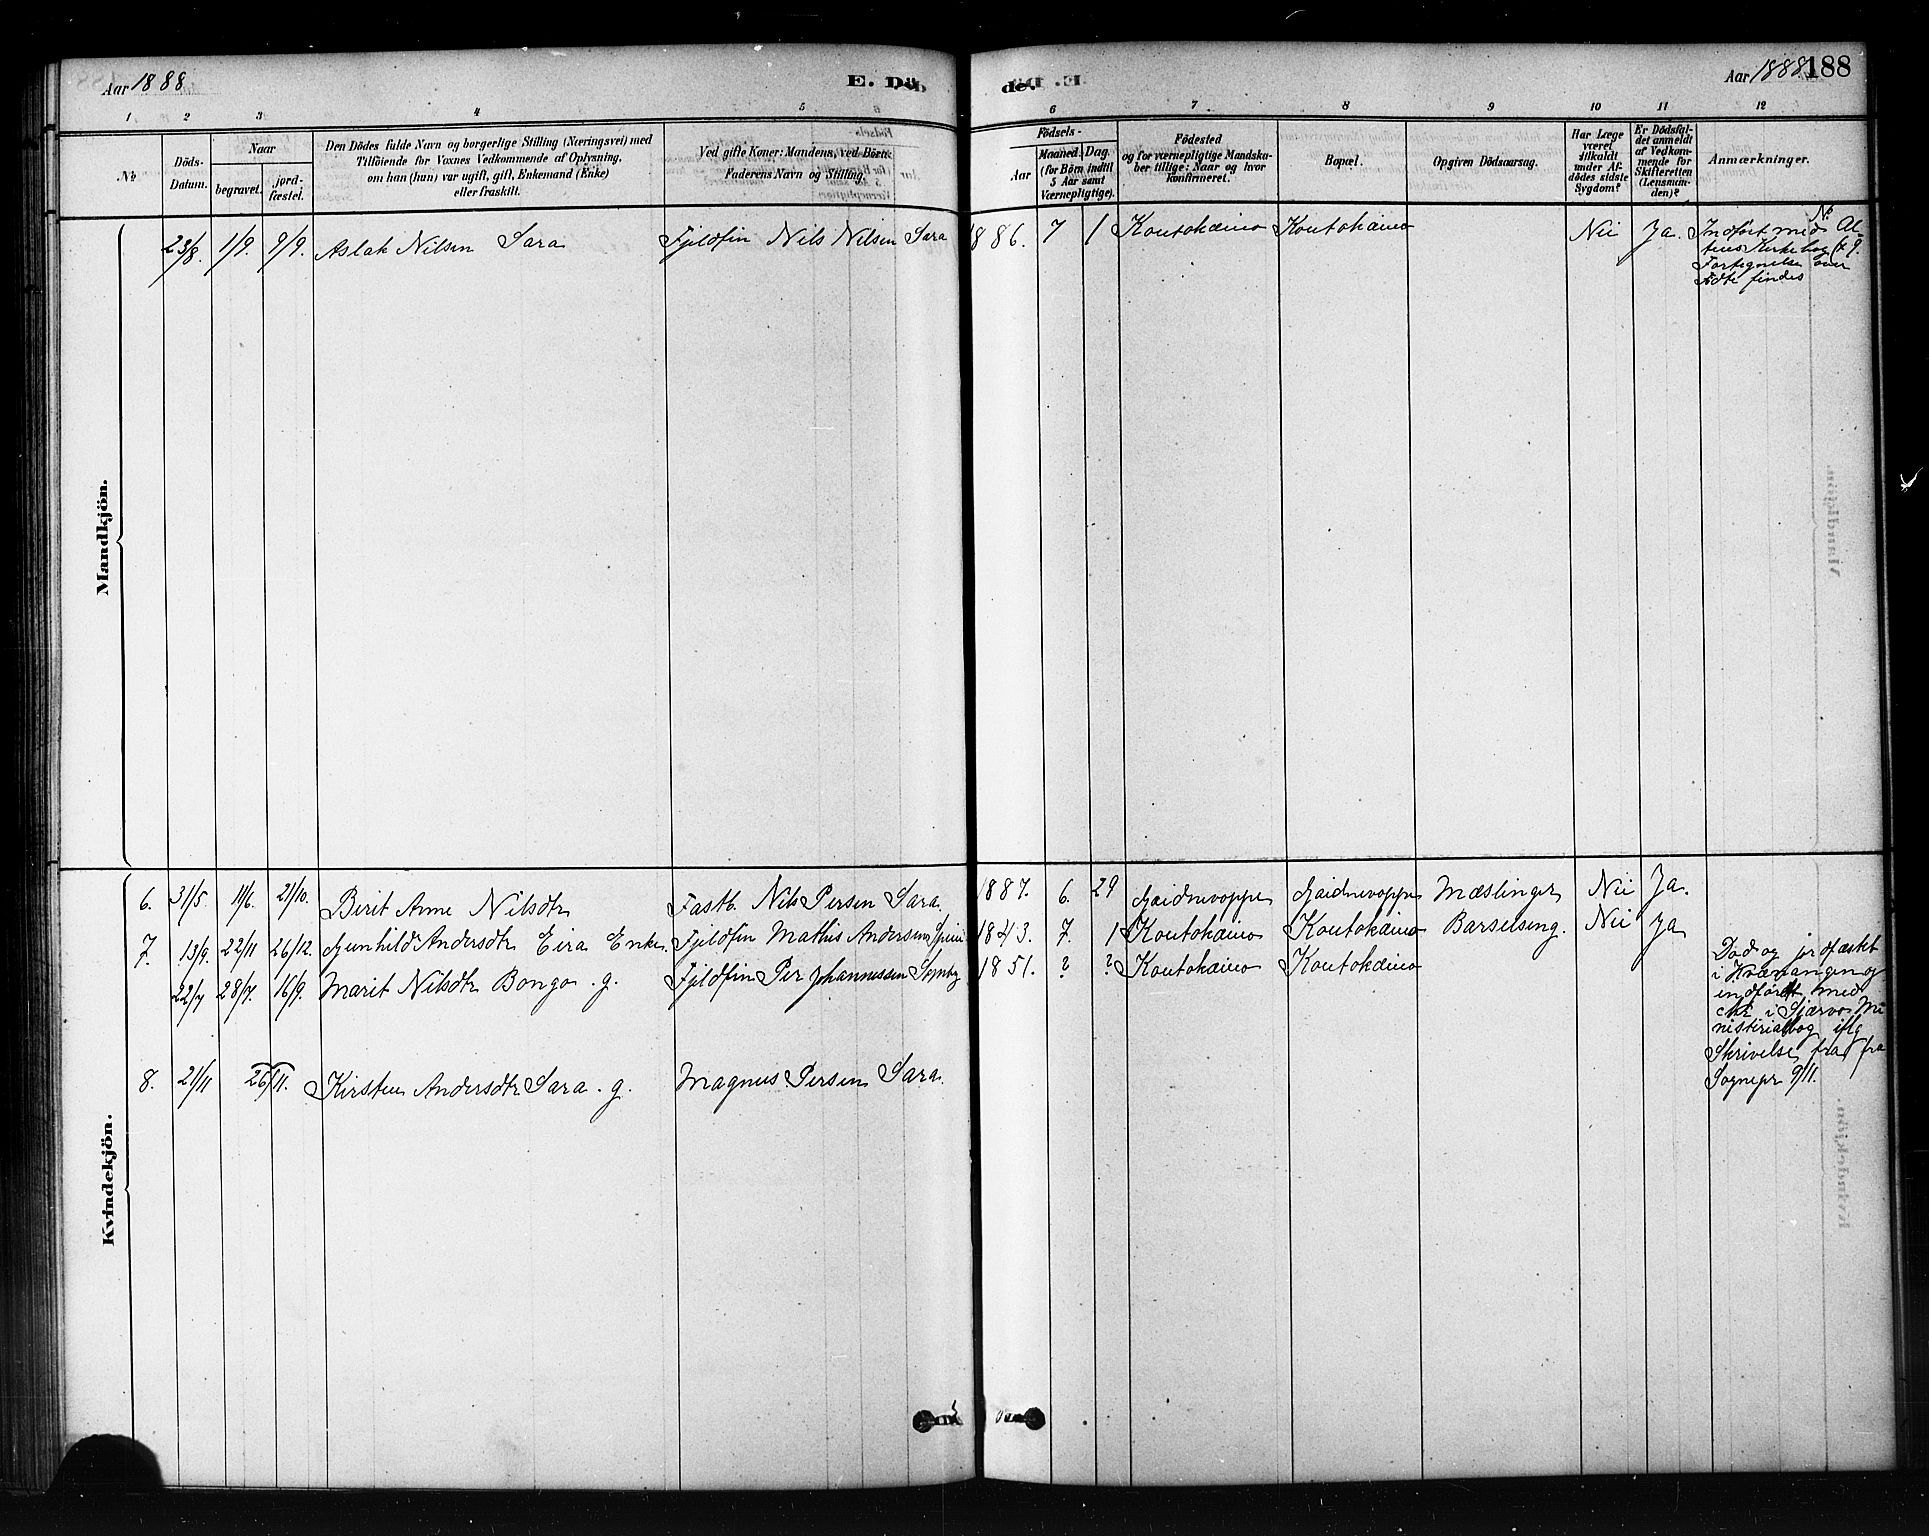 Aar 1888
E. Dö
de.
Aar 1888
188
1 2 3 4 5 6 7 8 9 10 11 12
№
Döds-
Datum.
Naar
begravet.
jord-
fæstet.
Den Dödes fulde Navn og borgerlige Stilling (Næringsvei) med
Tilföiende for Voxnes Vedkommende af Oplysning,
om han (hun) var ugift, gift, Enkemand (Enke)
eller fraskilt.
Ved gifte Koner: Mandens, ved Börn:
Faderens Navn og Stilling.
Födsels-
Aar
Maaned. Dag.
(for Börn indtil
5 Aar samt
Værnepligtige).
Födested
og for værnepligtige Mandska-
ber tillige: Naar og hvor
konfirmeret.
Bopæl.
Opgiven Dödsaarsag.
Har Læge
været
tilkaldt
under Af-
dödes sidste
Sygdom?
Er Dödsfal-
det anmeldt
af Vedkom-
mende for
Skifteretten
(Lensman-
den)?
Anmærkninger.
Mandkjön.
23/8 1/9. 9/9. Aslak Nilsen Sara Fjeldfin Nils Nilsen Sara 1886. 7 1 Koutokæino Koutokæino Nei Ja.
Indført med № Al-
tens Kirkebog
Fortegnelse over
Fødte findes
Kvindekjön.
6. 31/5 11/6. 21/10. Berit Anne Nilsdtr Fastb. Nils Persen Sara. 1887. 6. 29 Gaidnevoppe Gaidnevoppe Mæslinger Nei Ja.
7. 13/9. 22/11 26/12. Gunhild Andersdtr Eira Enke. Fjeldfin Mathis Andersen 1843. 7. 1 Koutokæino Koutokæino Barselseng. Nei Ja
22/7 28/7. 16/9. Marit Nilsdtr Bongo. g. Fjeldfin Per Johannessen 1851. ? ? Koutokæino Koutokæino
Død og jordfæstet
i Kvænangen og
indført med
i Skjærvø Mi-
nisterialbog iflg
Skrivelse fra
Sognepr 9/11.
8. 21/11 26/11. Kirsten Andersdtr Sara. g. Magnus Persen Sara.